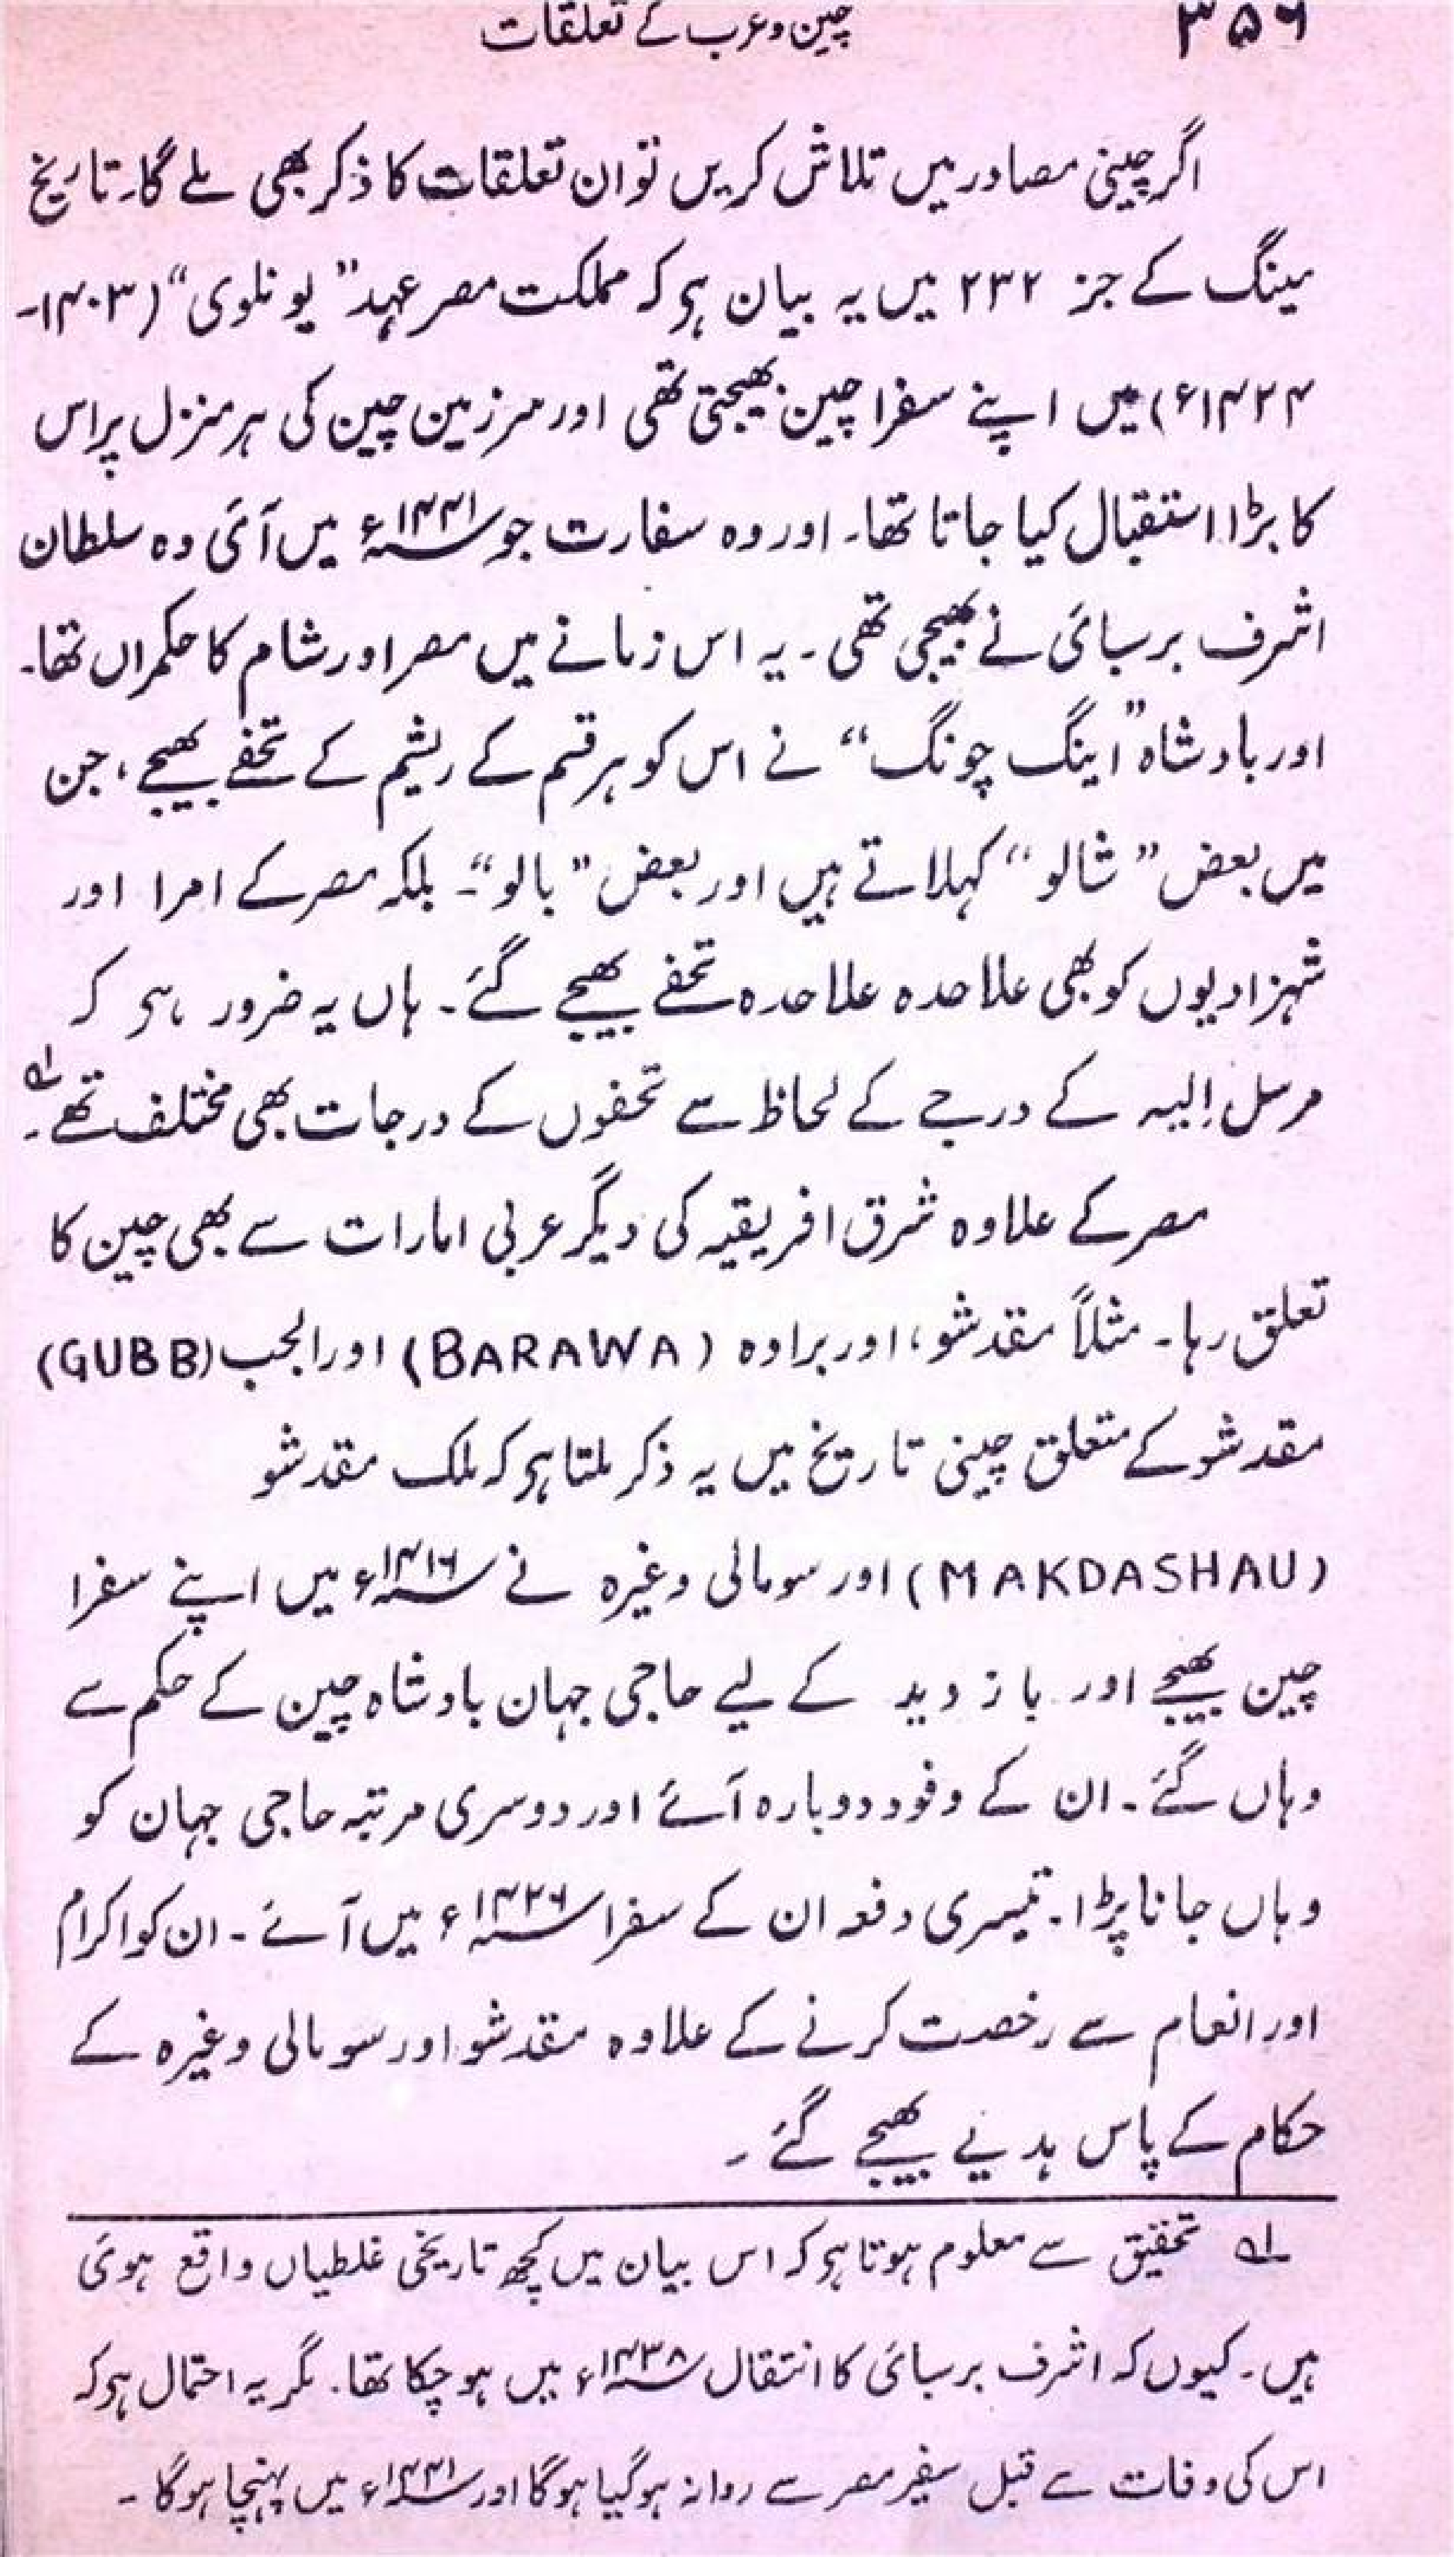 ۳۵۶ چین و عرب کے تعلقات
اگر چینی مصادر میں تلاش کریں تو ان تعلقات کا ذکر بھی ملے گا۔ تاریخ
مینگ کے جز ۲۳۲ میں یہ بیان ہے کہ مملکت مصر عہد ”یونلوی“ (۱۴۰۳۔
۱۴۲۴ء) میں اپنے سفرا چین بھیجتی تھی اور سرزمین چین کی ہر منزل پر اس
کا بڑا استقبال کیا جاتا تھا۔ اور وہ سفارت جو ۱۴۴۱ء میں آئی وہ سلطان
اشرف برسبائی نے بھیجی تھی۔ یہ اس زمانے میں مصر اور شام کا حکمراں تھا۔
اور بادشاہ ”اینگ چونگ“ نے اس کو ہر قسم کے ریشم کے تحفے بھیجے، جن
میں بعض ”شالو“ کہلاتے ہیں اور بعض ”بالو“۔ بلکہ مصر کے امرا اور
شہزادیوں کو بھی علاحدہ علاحدہ تحفے بھیجے گئے۔ ہاں یہ ضرور ہے کہ
مرسل اِلیہ کے درجے کے لحاظ سے تحفوں کے درجات بھی مختلف تھے۔ لہ
مصر کے علاوہ شرق افریقیہ کی دیگر عربی امارات سے بھی چین کا
تعلق رہا۔ مثلاً مقدشو، اور براوہ (BARAWA) اور الجب (GUBB)
مقدشو کے متعلق چینی تاریخ میں یہ ذکر ملتا ہے کہ ملک مقدشو
(MAKDASHAU) اور سومالی وغیرہ نے ۱۴۱۶ء میں اپنے سفرا
چین بھیجے اور باز دید کے لیے حاجی جہان بادشاہ چین کے حکم سے
وہاں گئے۔ ان کے وفود دوبارہ آئے اور دوسری مرتبہ حاجی جہان کو
وہاں جانا پڑا۔ تیسری دفعہ ان کے سفرا ۱۴۲۶ء میں آئے۔ ان کو اکرام
اور انعام سے رخصت کرنے کے علاوہ مقدشو اور سومالی وغیرہ کے
حکام کے پاس ہدیے بھیجے گئے۔
لہ تحقیق سے معلوم ہوتا ہے کہ اس بیان میں کچھ تاریخی غلطیاں واقع ہوئی
ہیں۔ کیوں کہ اشرف برسبائی کا انتقال ۱۴۳۸ء میں ہو چکا تھا۔ مگر یہ احتمال ہے کہ
اس کی وفات سے قبل سفیر مصر سے روانہ ہو گیا ہوگا اور ۱۴۴۱ء میں پہنچا ہوگا۔